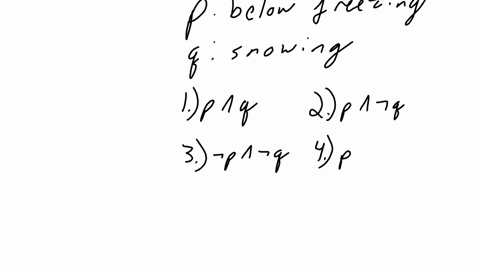 p: below freezing
q: snowing
1.) p ∧ q 2.) p ∧ ¬q
3.) ¬p ∧ ¬q 4.) p